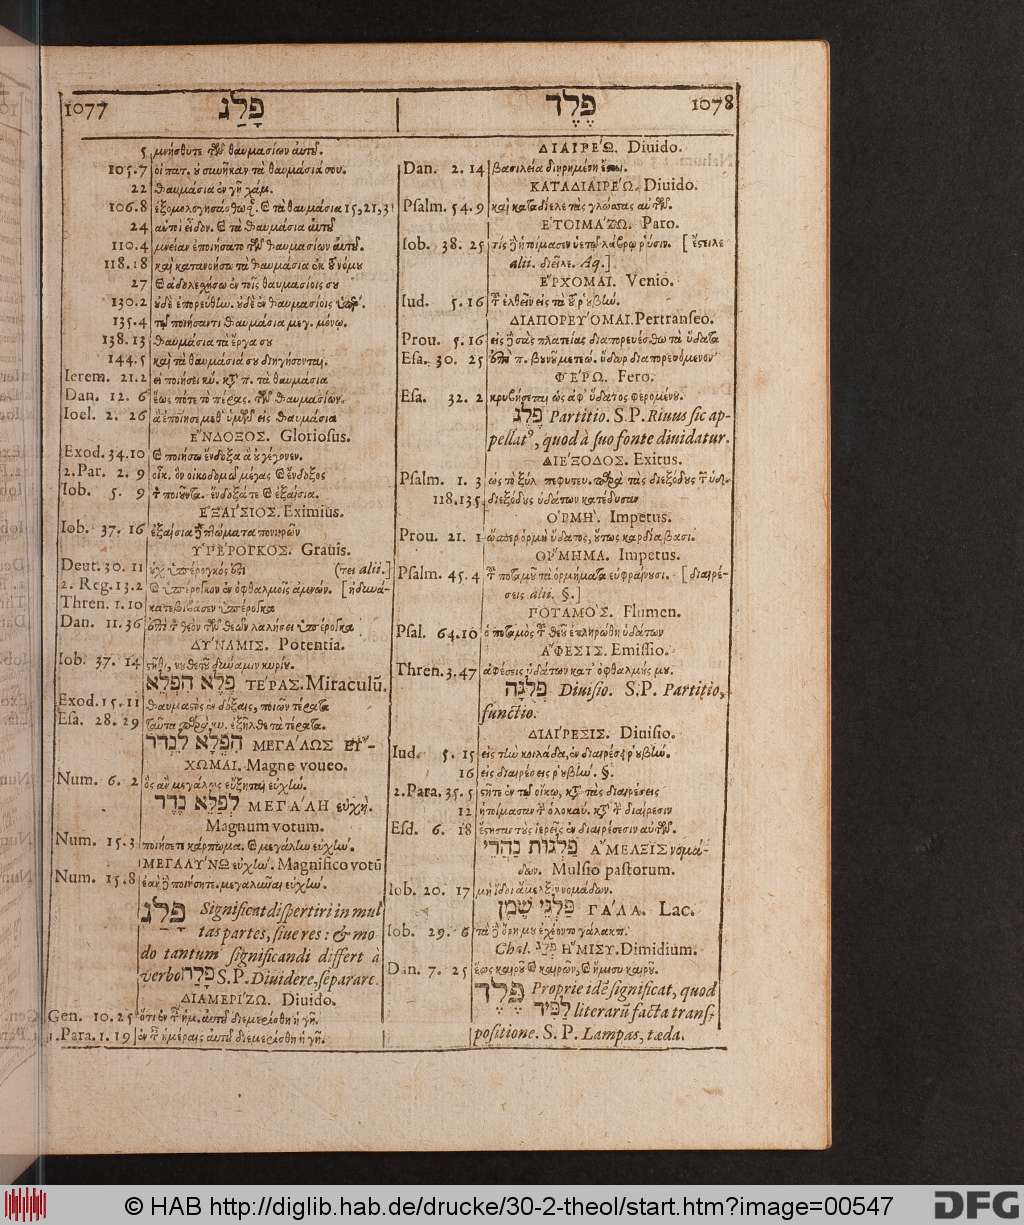 1077 פָּלַג פֶּלֶד 1078
5 μνήσθητε τῶν θαυμασίων αὐτοῦ.
105.7 οἱ πατ. οὐ συνῆκαν τὰ θαυμάσιά σου.
22 θαυμάσια ἐν γῇ χάμ.
106.8 τὰ θαυμάσια 15,21,31
24 αὐτοὶ εἶδον. τὰ θαυμάσια αὐτοῦ
110.4 μνείαν ἐποιήσατο τῶν θαυμασίων αὐτοῦ.
118.18 καὶ κατανοήσω τὰ θαυμάσια ἐκ τοῦ νόμου
27 ἀδολεσχήσω ἐν τοῖς θαυμασίοις σου
130.2 οὐδὲ ἐπορεύθην. οὐδὲ ἐν θαυμασίοις
135.4 τῷ ποιήσαντι θαυμάσια μεγ. μόνῳ.
138.13 θαυμάσια τὰ ἔργα σου
144.5 καὶ τὰ θαυμάσιά σου διηγήσονται.
Ierem. 21.2 εἰ ποιήσει κύ. κατὰ π. τὰ θαυμάσια
Dan. 12. 6 ἕως πότε τὸ πέρας. τῶν θαυμασίων.
Ioel. 2. 26 ἃ ἐποίησε μεθ' ὑμῶν εἰς θαυμάσια
ἜΝΔΟΞΟΣ. Gloriosus.
Exod. 34.10 ποιήσω ἔνδοξα ἃ οὐ γέγονεν.
2.Par. 2. 9 οἶκ. ὃν οἰκοδομῶ μέγας ἔνδοξος
Iob. 5. 9 ἔνδοξά τε ἐξαίσια.
ἘΞΑΊΣΙΟΣ. Eximius.
Iob. 37. 16 ἐξαίσια πτώματα πονηρῶν
ὙΠΈΡΟΓΚΟΣ. Grauis.
Deut. 30. 11 οὐχ ὑπέρογκός ἐστι (τει alii.]
2. Reg. 13.2 ὑπέρογκον ἐν ὀφθαλμοῖς ἀμνών. [ἠδυνά-
Thren. 1.10 κατεβίβασεν ὑπέρογκα
Dan. 11.36 ἐπὶ τ θεὸν τῶν θεῶν λαλήσει ὑπέρογκα
ΔΎΝΑΜΙΣ. Potentia.
Iob. 37. 14 στῆθι, νουθετοῦ δύναμιν κυρίου.
פֶּלֶא הִפְלִא ΤΈΡΑΣ. Miraculū.
Exod. 15. 11 θαυμαστὸς ἐν δόξαις, ποιῶν τέρατα
Esa. 28. 29 ταῦτα παρὰ κυ. ἐξῆλθε τὰ τέρατα.
הִפְלִא לִנְדֹּר ΜΕΓΆΛΩΣ ΕὝ-
ΧΟΜΑΙ. Magne voueo.
Num. 6. 2 ὃς ἂν μεγάλως εὔξηται εὐχήν.
לְפַלֵּא נֶדֶר ΜΕΓΆΛΗ εὐχή.
Magnum votum.
Num. 15.3 ποιήσετε κάρπωμα. μεγάλην εὐχήν.
ΜΕΓΑΛΎΝΩ εὐχήν. Magnifico votū
Num. 15.8 ἐὰν ποιήσητε. μεγαλῦναι εὐχήν.
פָּלַג Significat dispertiri in mul
tas partes, siue res: & mo
do tantum significandi differt à
verbo פָּלָה S.P. Diuidere, separare.
ΔΙΑΜΕΡΊΖΩ. Diuido.
Gen. 10. 25 ὅτι ἐν τ ἡμ. αὐτοῦ διεμερίσθη ἡ γῆ.
1.Para. 1. 19 ἐν τ ἡμέραις αὐτοῦ διεμερίσθη ἡ γῆ.
ΔΙΑΙΡΈΩ. Diuido.
Dan. 2. 14 βασιλεία διῃρημένη ἔσται.
ΚΑΤΑΔΙΑΙΡΈΩ. Diuido.
Psalm. 54. 9 καὶ καταδίελε τὰς γλώσσας αὐτῶν.
ἙΤΟΙΜΆΖΩ. Paro.
Iob. 38. 25 τίς ἡτοίμασεν ὑετῷ λάβρῳ ῥύσιν. [ἔστειλε
alii. διεῖλε. Aq.]
ἜΡΧΟΜΑΙ. Venio.
Iud. 5. 16 τ ἐλθεῖν εἰς τὰ τοῦ ῥουβίν.
ΔΙΑΠΟΡΕΎΟΜΑΙ. Pertranseo.
Prou. 5. 16 εἰς σὰς πλατείας διαπορευέσθω τὰ ὕδατα
Esa. 30. 25 ἐπὶ π. βουνοῦ μετεώ. ὕδωρ διαπορευόμενον
ΦΈΡΩ. Fero.
Esa. 32. 2 κρυβήσεται ὡς ἀφ' ὕδατος φερομένου.
פֶּלֶג Partitio. S.P. Riuus sic ap-
pellat⁹, quod à suo fonte diuidatur.
ΔΙΈΞΟΔΟΣ. Exitus.
Psalm. 1. 3 ὡς τὸ ξύλ πεφυτευ. παρὰ τὰς διεξόδους τ ὑδ.
118.135 διεξόδους ὑδάτων κατέδυσαν
ὉΡΜΉ. Impetus.
Prou. 21. 1 ὥσπερ ὁρμὴ ὕδατος, οὕτως καρδία βασι.
ὍΡΜΗΜΑ. Impetus.
Psalm. 45. 4 τ ποταμοῦ τὰ ὁρμήματα εὐφραίνουσι. [διαιρέ-
σεις alii. §.]
ΠΟΤΑΜΌΣ. Flumen.
Psal. 64.10 ὁ ποταμὸς τ θεοῦ ἐπληρώθη ὑδάτων
ἌΦΕΣΙΣ. Emissio.
Thren. 3.47 ἀφέσεις ὑδάτων κατ' ὀφθαλμός μου.
פְּלֻגָּה Diuisio. S.P. Partitio,
functio.
ΔΙΑΊΡΕΣΙΣ. Diuisio.
Iud. 5. 15 εἰς τὴν κοιλάδα, ἐν διαιρέσ. ῥουβίν.
16 εἰς διαιρέσεις ῥουβίν. §.
2.Para. 35. 5 στῆτε ἐν τῷ οἴκῳ, κατὰ τὰς διαιρέσεις
12 ἡτοίμασαν τ ὁλοκαύ. κατὰ τ διαίρεσιν
Esd. 6. 18 ἔστησαν τοὺς ἱερεῖς ἐν διαιρέσεσιν αὐτῶν.
פְּלַגּוֹת נַהֲרֵי ἌΜΕΛΞΙΣ νομά-
δων. Mulsio pastorum.
Iob. 20. 17 μὴ ἴδοι ἄμελξιν νομάδων.
פַּלְגֵי שֶׁמֶן ΓΆΛΑ. Lac.
Iob. 29. 6 τὰ ὄρη μου ἐχέοντο γάλακτι.
Chal. פְּלַג ἭΜΙΣΥ. Dimidium.
Dan. 7. 25 ἕως καιροῦ καιρῶν, ἥμισυ καιροῦ.
פֶּלֶד Proprie idē significat, quod
לַפִּיד literarū facta trans-
positione. S. P. Lampas, tæda.
© HAB http://diglib.hab.de/drucke/30-2-theol/start.htm?image=00547
DFG